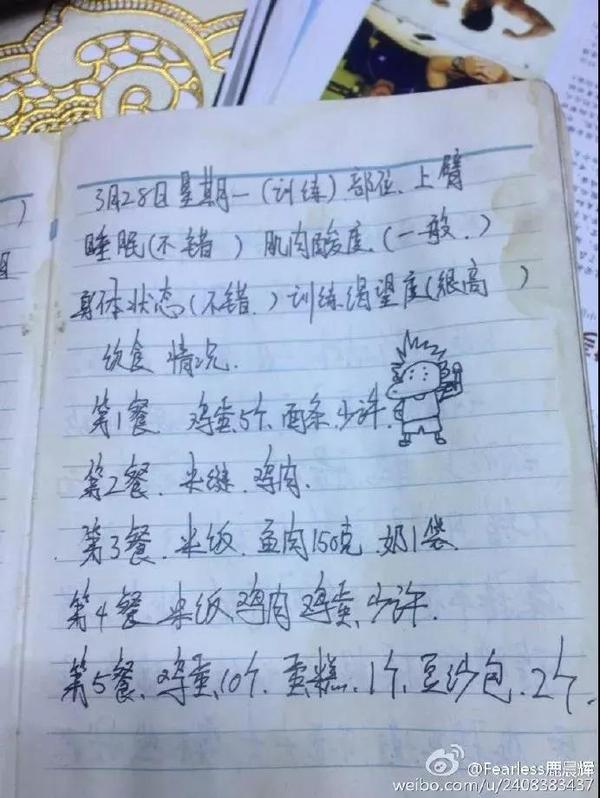 3月28日 星期一 (训练) 部位、上臂
睡眠(不错 ) 肌肉酸度、(一般、)
身体状态(不错、) 训练渴望度(很高 )
饮食 情况、
第1餐、 鸡蛋5个、面条、少许、
第2餐、 米 鸡肉、
第3餐、米饭、鱼肉150克 奶1袋
第4餐 米饭 鸡肉 鸡蛋、少许、
第5餐、鸡蛋10个、蛋糕、1个、豆沙包、2个、
@Fearless鹿晨辉
weibo.com/u/2408383437